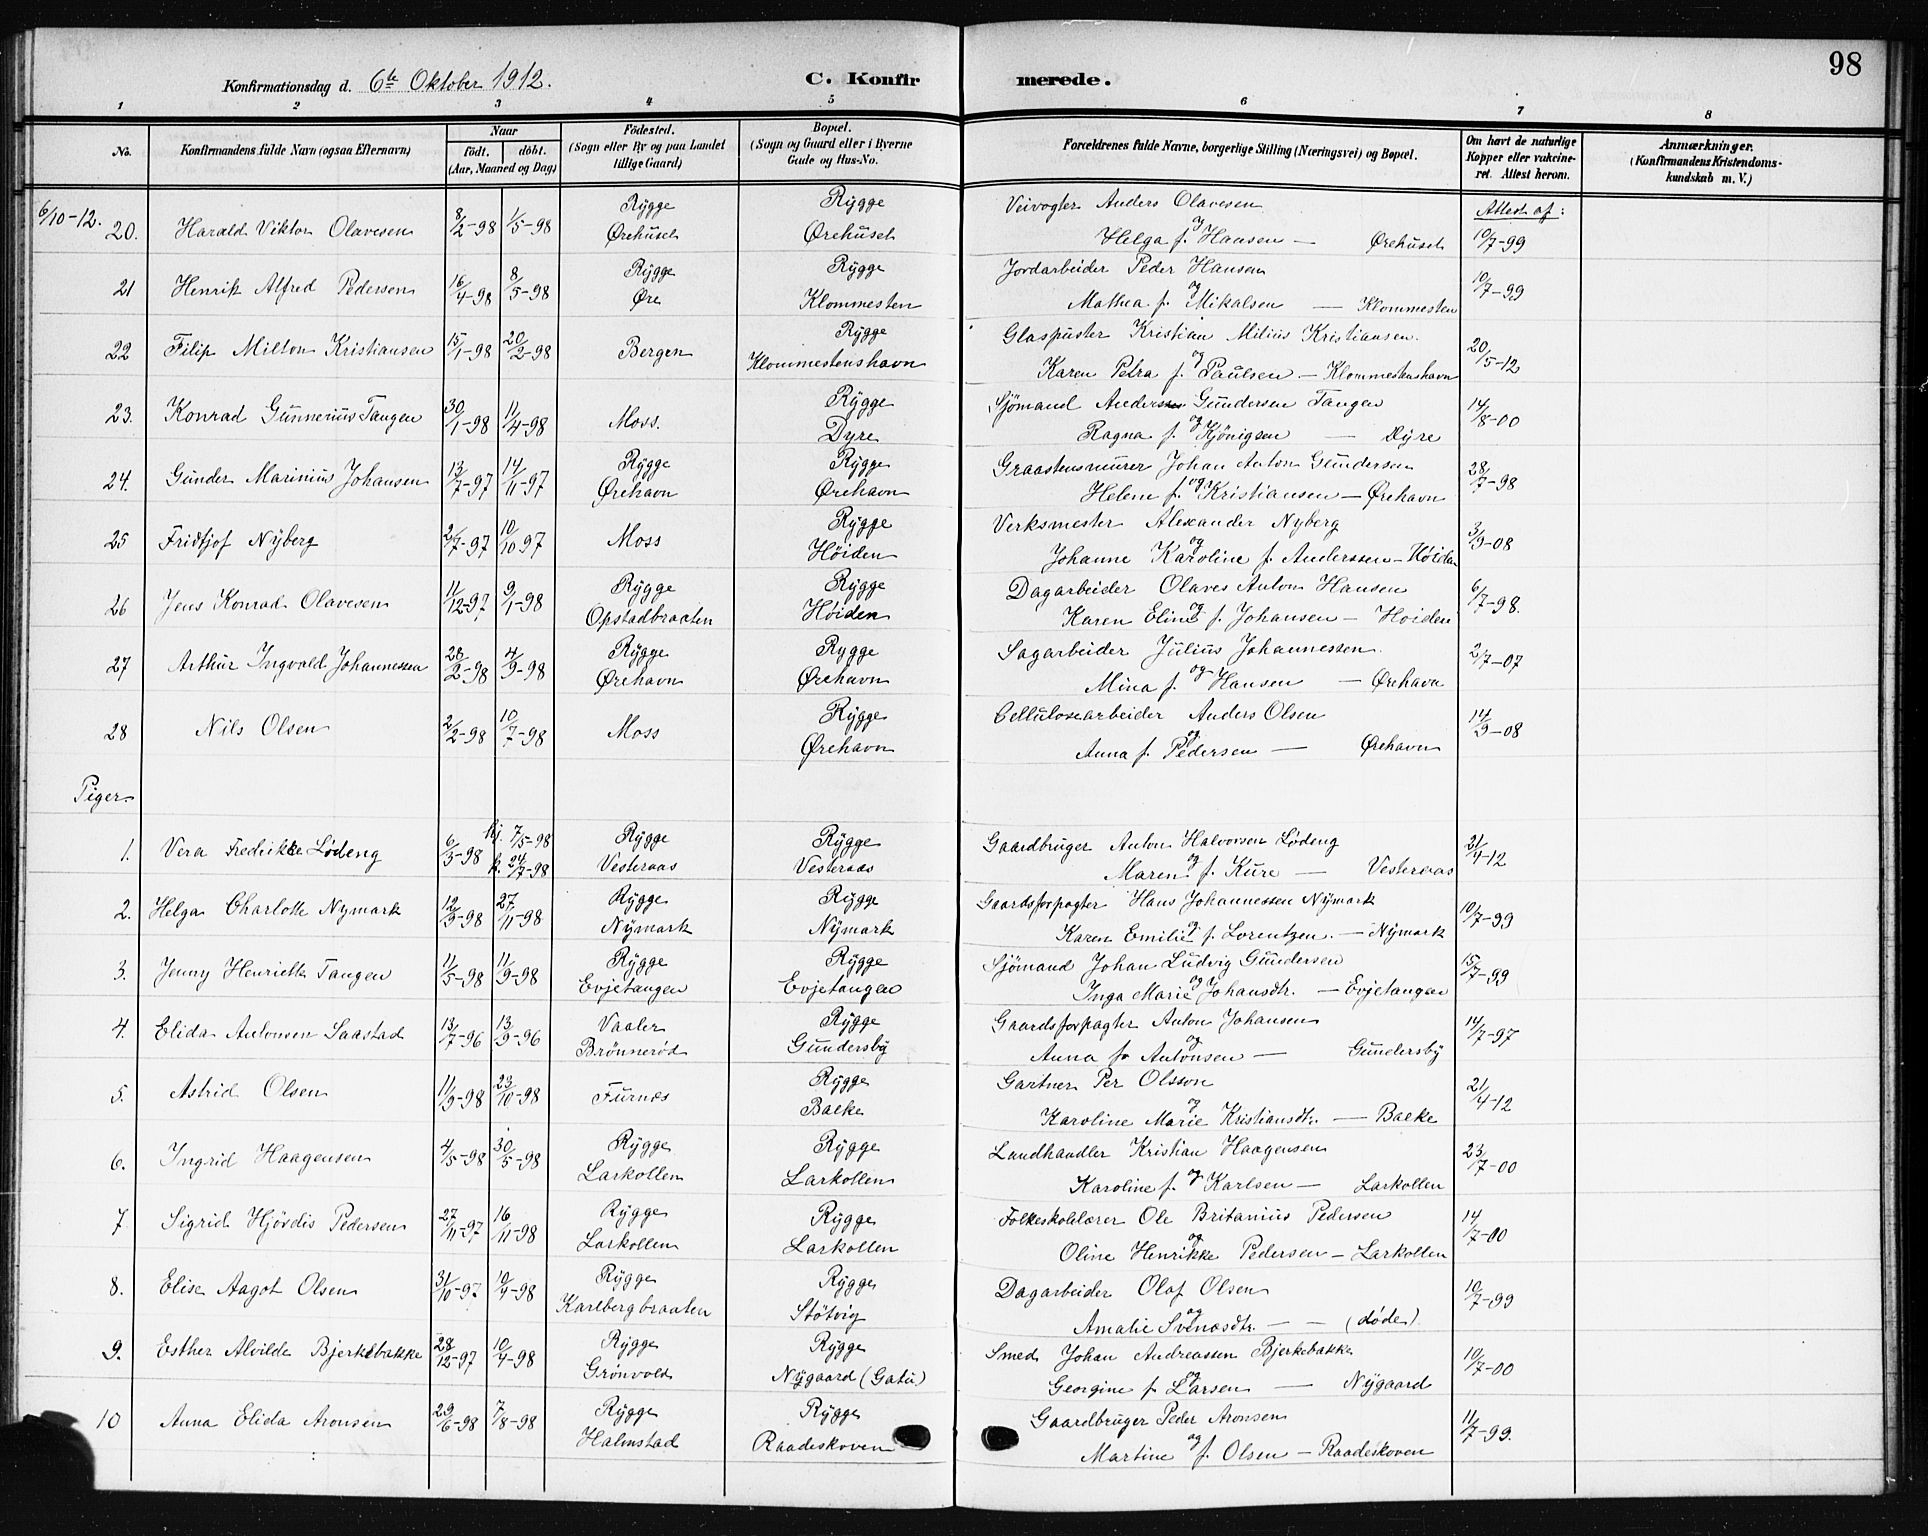 98
Konfirmationsdag d. 6te Oktober 1912. C. Konfirmerede.
1 2 3 4 5 6 7 8
No. Konfirmandens fulde Navn (ogsaa Efternavn) Naar födt. döbt. (Aar, Maaned og Dag) Födested. (Sogn eller By og paa Landet tillige Gaard) Bopæl. (Sogn og Gaard eller i Byerne Gade og Hus-No. Forældrenes fulde Navne, borgerlige Stilling (Næringsvei) og Bopæl. Om havt de naturlige Kopper eller vakcineret. Attest herom. Anmærkninger. (Konfirmandens Kristendomskundskab m. V.)
6/10-12. Rygge Rygge Veivogter Anders Olavesen Attest af:
20. Harald Viktor Olavesen 8/2-98 1/5-98 Ørehuset Ørehuset og Helga f. Hansen — Ørehuset 10/7-99
Rygge Rygge Jordarbeider Peder Hansen
21 Henrik Alfred Pedersen 16/4-98 8/5-98 Øre Klommesten og Mathea f. Mikalsen — Klommesten 10/7-99
Rygge Glaspuster Kristian Milius Kristiansen.
22 Filip Milton Kristiansen 15/1-98 20/2-98 Bergen Klommestenshavn og Karen Petra f. Paulsen — Klommestenshavn 20/5-12
Rygge Sjömand Anders Gundersen Tangen
23. Konrad Gunnerius Tangen 30/1-98 11/4-98 Moss. Dyre og Ragna f. Kjönigsen — Dyre 14/8-00
Rygge Rygge Graastensmurer Johan Anton Gundersen
24. Gunder Marinius Johansen 13/7-97 14/11-97 Ørehavn Ørehavn og Helene f. Kristiansen — Ørehavn 28/7-98
Rygge Verksmester Alexander Nyberg
25 Fridtjof Nyberg 2/7-97 10/10 97 Moss Höiden og Johanne Karoline f. Anderssen — Höiden 3/9-08
Rygge Rygge Dagarbeider Olaves Anton Hansen
26 Jens Konrad Olavesen 11/12-97 9/1-98 Opstadbraaten Höiden og Karen Eline f. Johansen — Hoiden 6/7-98.
Rygge Rygge Sagarbeider Julius Johannessen.
27 Arthur Ingvald Johannessen 28/2-98 4/9-98 Ørehavn Ørehavn og Mina f. Hansen — Ørehavn 2/7-07
Rygge Cellulosearbeider Anders Olsen
28 Nils Olsen 2/2-98 10/7-98 Moss Ørehavn og Anna f. Pedersen — Ørehavn 14/9-08
Piger.
hj. 7/5-98 Rygge Rygge Gaardbruger Anton Halvorsen Lødeng
1. Vera Fredrikke Lødeng 6/3-98 k. 24/7-98 Vesteraas Vesteraas og Maren f. Kure — Vesteraas 21/4-12
Rygge Rygge Gaardsforpagter Hans Johannessen Nymark
2. Helga Charlotte Nymark 12/3-98 27/11-98 Nymark Nymark og Karen Emilie f. Lorentzen. — Nymark 10/7-99
Rygge Rygge Sjömand Johan Ludvig Gundersen
3. Jenny Henriette Tangen 11/5-98 11/9-98 Evjetangen Evjetangen og Inga Marie Johansdtr. — Evjetangen 15/7-99
Vaaler Rygge Gaardsforpagter Anton Johansen
4. Elida Antonsen Saastad 13/7-96 13/9-96 Brönneröd Gundersby og Anna f. Antonsen — Gundersby 14/7-97
Rygge Gartner Per Olsson
5. Astrid Olsen 11/9-98 23/10-98 Furnæs Bakke og Karoline Marie Kristiansdtr. — Bakke 21/4-12
Rygge Rygge Landhandler Kristian Haagensen
6. Ingrid Haagensen 4/5-98 30/5-98 Larkollen Larkollen og Karoline f. Karlsen — Larkollen 23/7-00
Rygge Rygge Folkeskolelærer Ole Britanius Pedersen
7 Sigrid Hjördis Pedersen 27/11-97 16/11-98 Larkollen Larkollen og Oline Henrikke Pedersen — Larkollen 14/7-00
Rygge Rygge Dagarbeider Olaf Olsen
8. Elise Aagot Olsen 31/10-97 10/4-98 Karlbergbraaten Stötvig og Amalie Svenesdtr. — — (døde) 10/7-99
Rygge Rygge Smed Johan Andreassen Bjerkebakke
9. Esther Alvilde Bjerkebakke 28/12-97 10/4-98 Grönvold Nygaard (Gatu) og Georgine f. Larsen — Nygaard 10/7-00
Rygge Rygge Gaardbruger Peder Aronsen
10 Anna Elida Aronsen 29/6-98 7/8-98 Halmstad Raadeskoven og Martine f. Olsen — Raadeskoven 11/7-99.